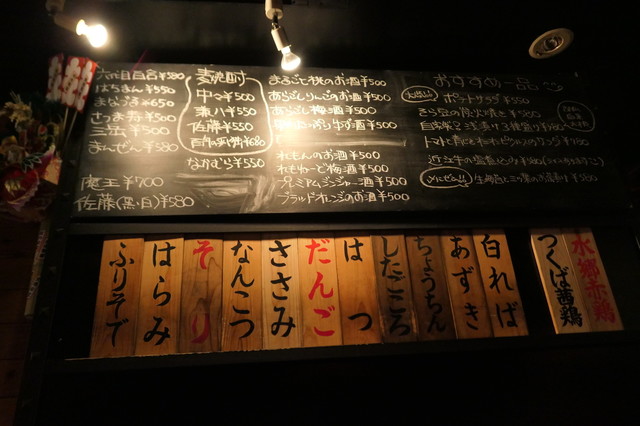 六代目百合¥580
はちまん¥550
まなつる¥650
さつま寿¥500
三岳¥500
まんぜん¥580
魔王¥700
佐藤(黒・白)¥580
麦焼酎
中々¥500
兼八¥550
佐藤¥550
百年の孤独¥680
なかむら¥550
まるごと桃のお酒¥500
あらごしりんごのお酒¥500
あらごし梅酒¥500
お酒¥500
れもんのお酒¥500
れもねーど梅酒¥500
プレミアムジンジャー酒¥500
ブラッドオレンジのお酒¥500
おすすめ一品
ポテトサラダ¥550
そら豆の炭火焼き¥580
トマト
水郷赤鶏
つくば茜鶏
白ればー
あずき
ちょうちん
したごころ
はつ
だんご
ささみ
なんこつ
そり
はらみ
ふりそで